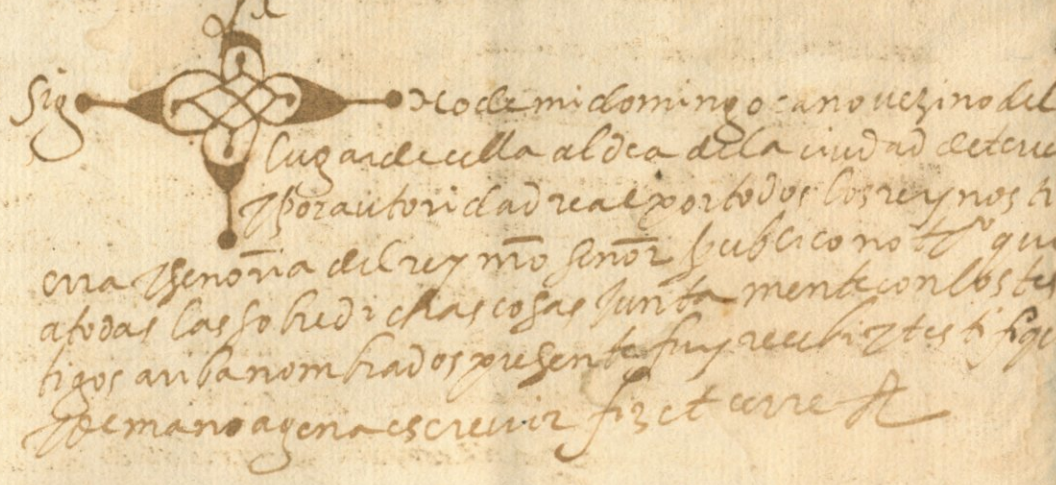 Sig no de mi domingo cano vezino del
lugar de cella aldea de la ciudad de teru
y por autoridad real por todos los reynos ti
erra y senoria del rey nro senor publico not.º qu
a todas las sobredichas cosas junta mente con los tes
tigos ariba nombrados presente fuy recebi y testifiq
y de mano agena escrevir fiz et cerre